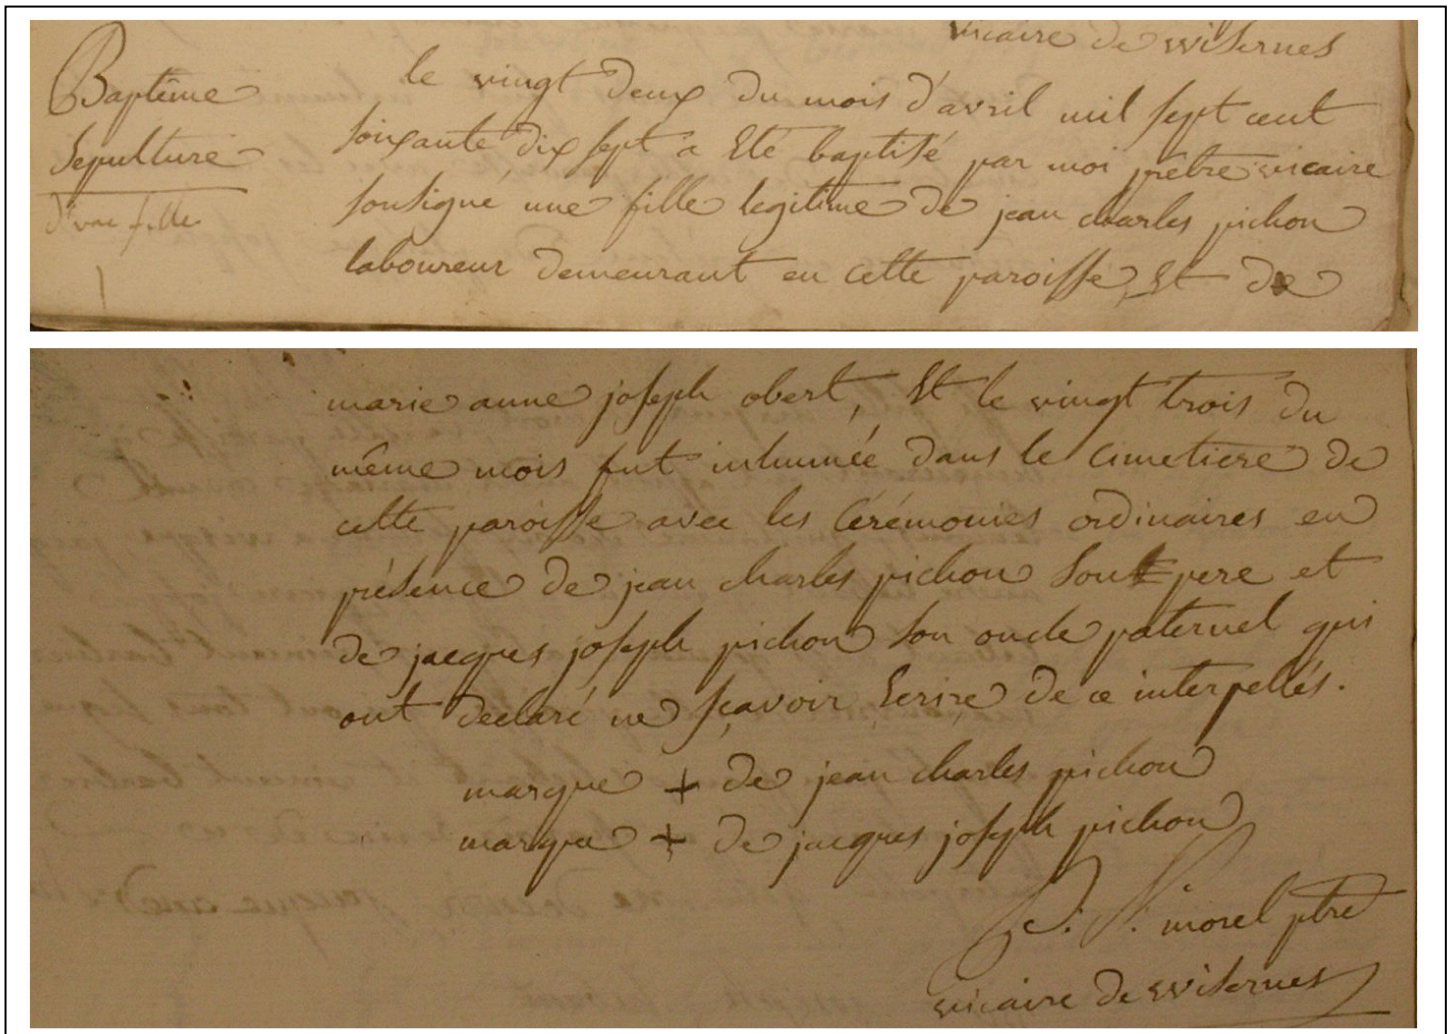 vicaire de wisernes
Baptême
Sepulture
d'une fille
le vingt deux du mois d'avril mil sept cent
soixante dix sept a Eté baptisé par moi prêtre vicaire
sousigné une fille legitime de jean charles pichon
laboureur demeurant en cette paroisse, Et de
marie anne joseph obert, Et le vingt trois du
même mois fut inhumée dans le cimetiere de
cette paroisse avec les Cérémonies ordinaires en
présence de jean charles pichon son pere et
de jacques joseph pichon son oncle paternel qui
ont declaré ne sçavoir Ecrire de ce interpellés.
marque + de jean charles pichon
marque + de jacques joseph pichon
morel ptre
vicaire de wisernes